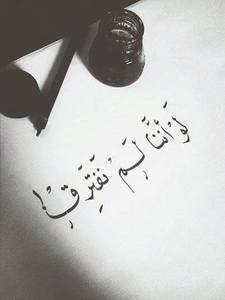 لَوْ أَنَّنَا لَمْ نَفْتَرِقْ!